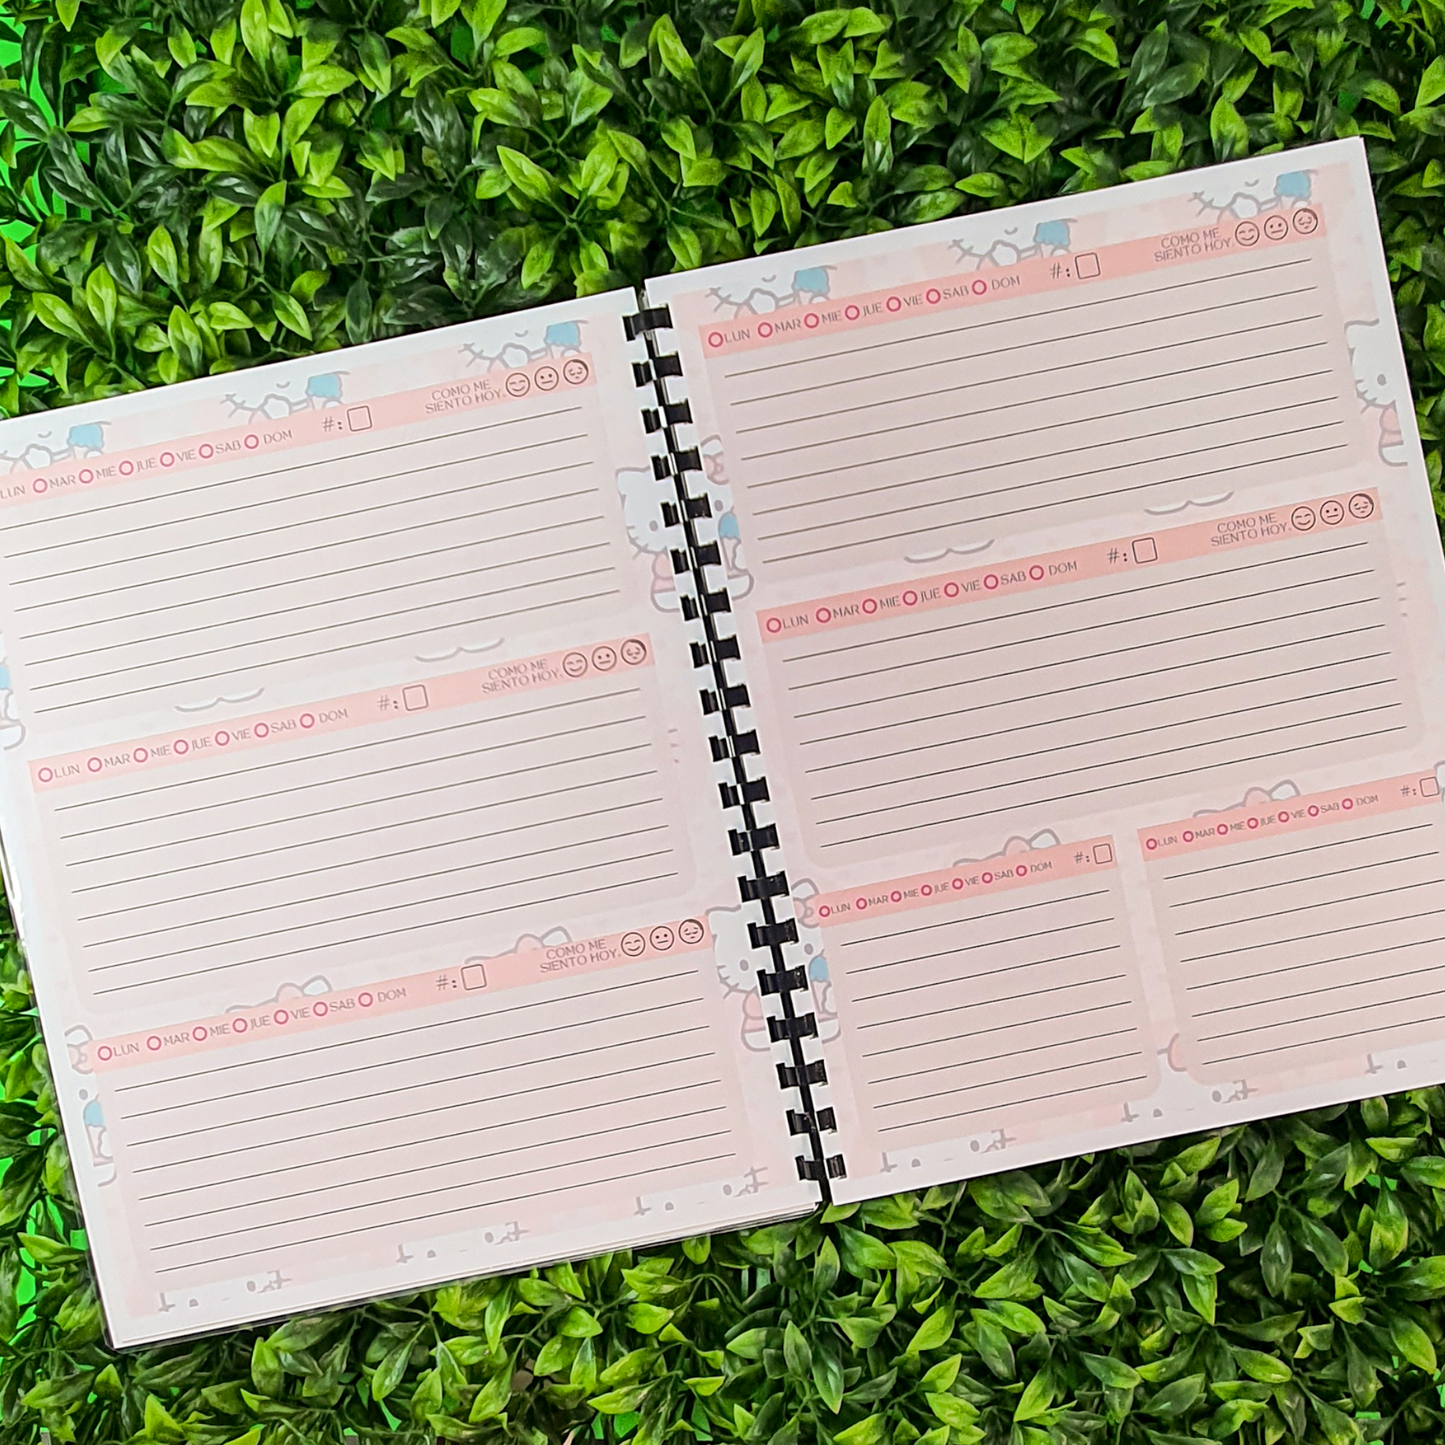 LUN MAR MIE JUE VIE SAB DOM #: COMO ME
SIENTO HOY.
LUN MAR MIE JUE VIE SAB DOM #: COMO ME
SIENTO HOY.
LUN MAR MIE JUE VIE SAB DOM #: COMO ME
SIENTO HOY.
LUN MAR MIE JUE VIE SAB DOM #: COMO ME
SIENTO HOY.
LUN MAR MIE JUE VIE SAB DOM #: COMO ME
SIENTO HOY.
LUN MAR MIE JUE VIE SAB DOM #:
LUN MAR MIE JUE VIE SAB DOM #: